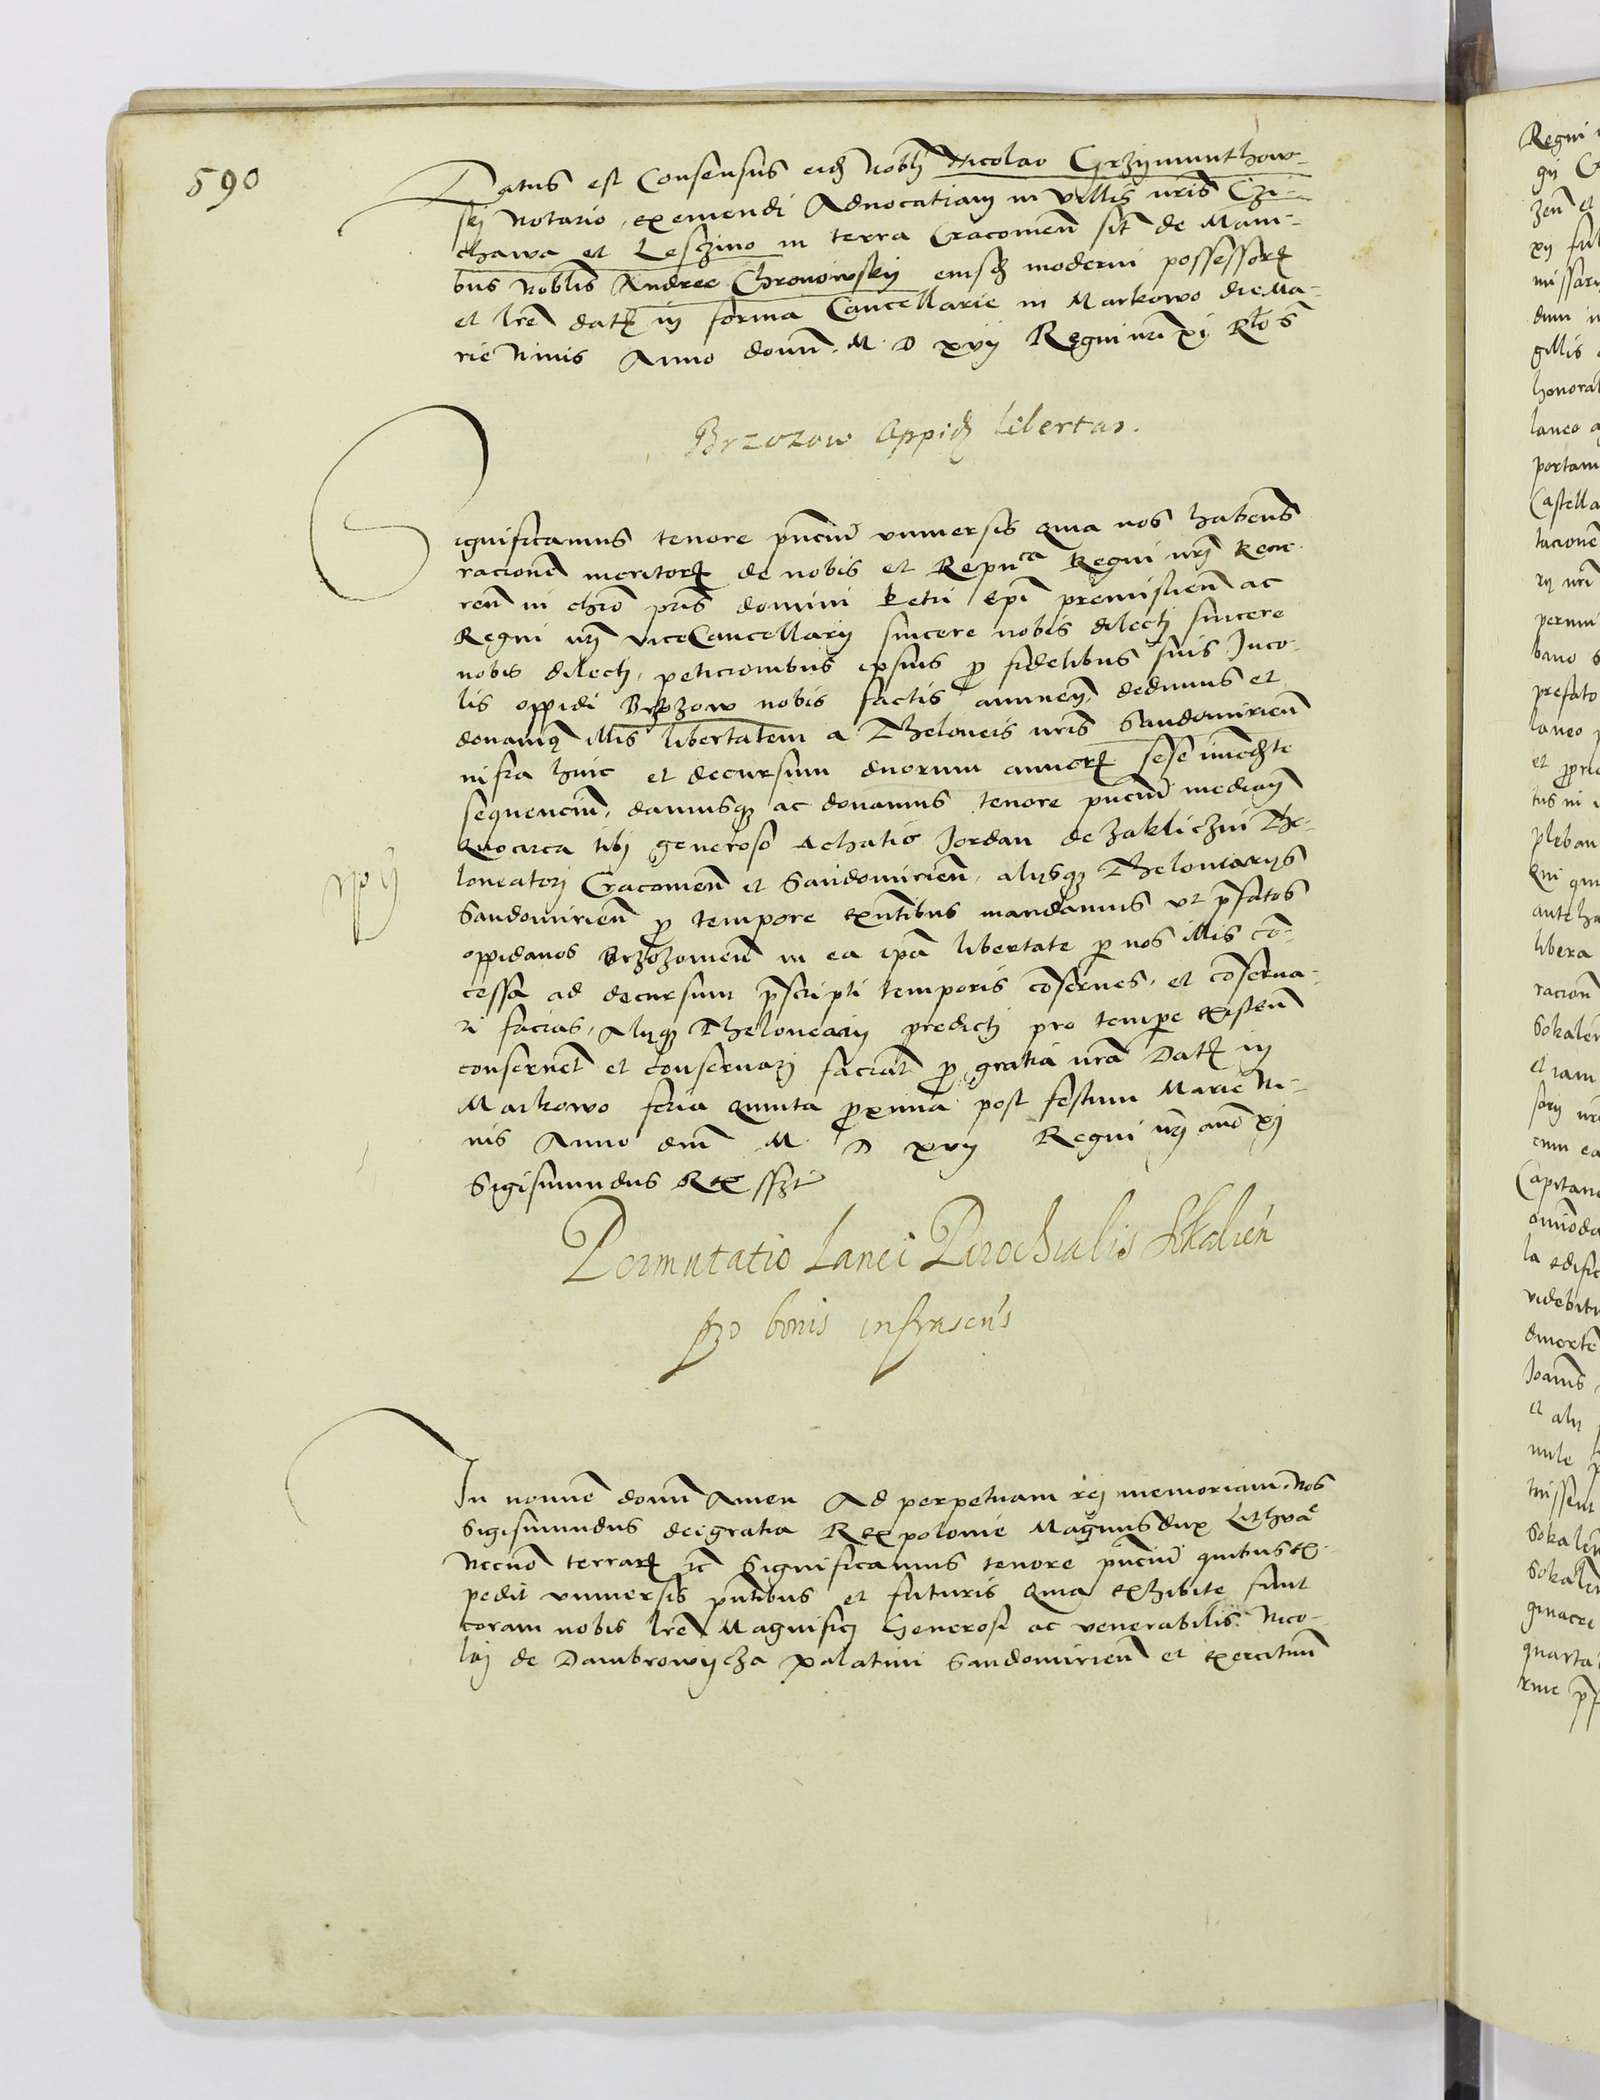 590
Datus est Consensus eid nobli Nicolao Grzymunthow-
sky Notario, exemendi Advocatiam in villis nris Czi-
chawa et Leszino in terra Cracouien sit de Mani-
bus noblis Andree Chronowsky eiusd moderni possessor
et lre dat in forma Cancellarie in Markowo die Ma-
rie Nivis Anno domi M D xvij Regni nri xj Rlo S
Brzozow Oppid libertas.
Significamus tenore pncium vniversis quia nos habens
racionem meritor de nobis et Repuca Regni nri Reve
ren in chro pris domini Petri Epi premislien ac
Regni nri viceCancellarij sincere nobis dilecti sincere
nobis dilecti, peticionibus ipsius pro fidelibus suis Inco-
lis oppidi Brzozow nobis factis annuen, dedimus et
donamq illis libertatem a Theloneis nris Sandomirien
infra hinc et decursum duorum annor sese immediate
sequencium, damusq ac donamus tenore pncium median
Quocirca tibi generoso Achatio Jordan de Zakliczin The-
loneatori Cracouien et Sandomirien, alijsq Theloniarijs
Sandomirien pro tempore exntibus mandamus vt prefatos
oppidanos Brzozouien in ea ipa libertate per nos illis con-
cessa ad decursum prescripti temporis conserves, et conserva-
ri facias, Alijq Thelonearij predicti pro tempore existen
conservet et conservari faciat pro gratia nra Dat in
Markowo feria quinta proxima post festum Marie Ni-
vis Anno dni M D xvij Regni nri ano xj
Sigismundus Rex sszt
Permutatio Lanei Parochialis Sokalien
pro bonis infrascris
In nomine domi Amen Ad perpetuam rei memoriam. Nos
Sigismundus deigratia Rex polonie Magnus dux Lithua
Necnon terrar etc Significamus tenore pncium quibus ex-
pedit vniversis pntibus et futuris quia exhibite sunt
coram nobis lre Magnifici Generosi ac venerabilis Nico-
lai de Dambrowycza palatini Sandomirien et exercituu